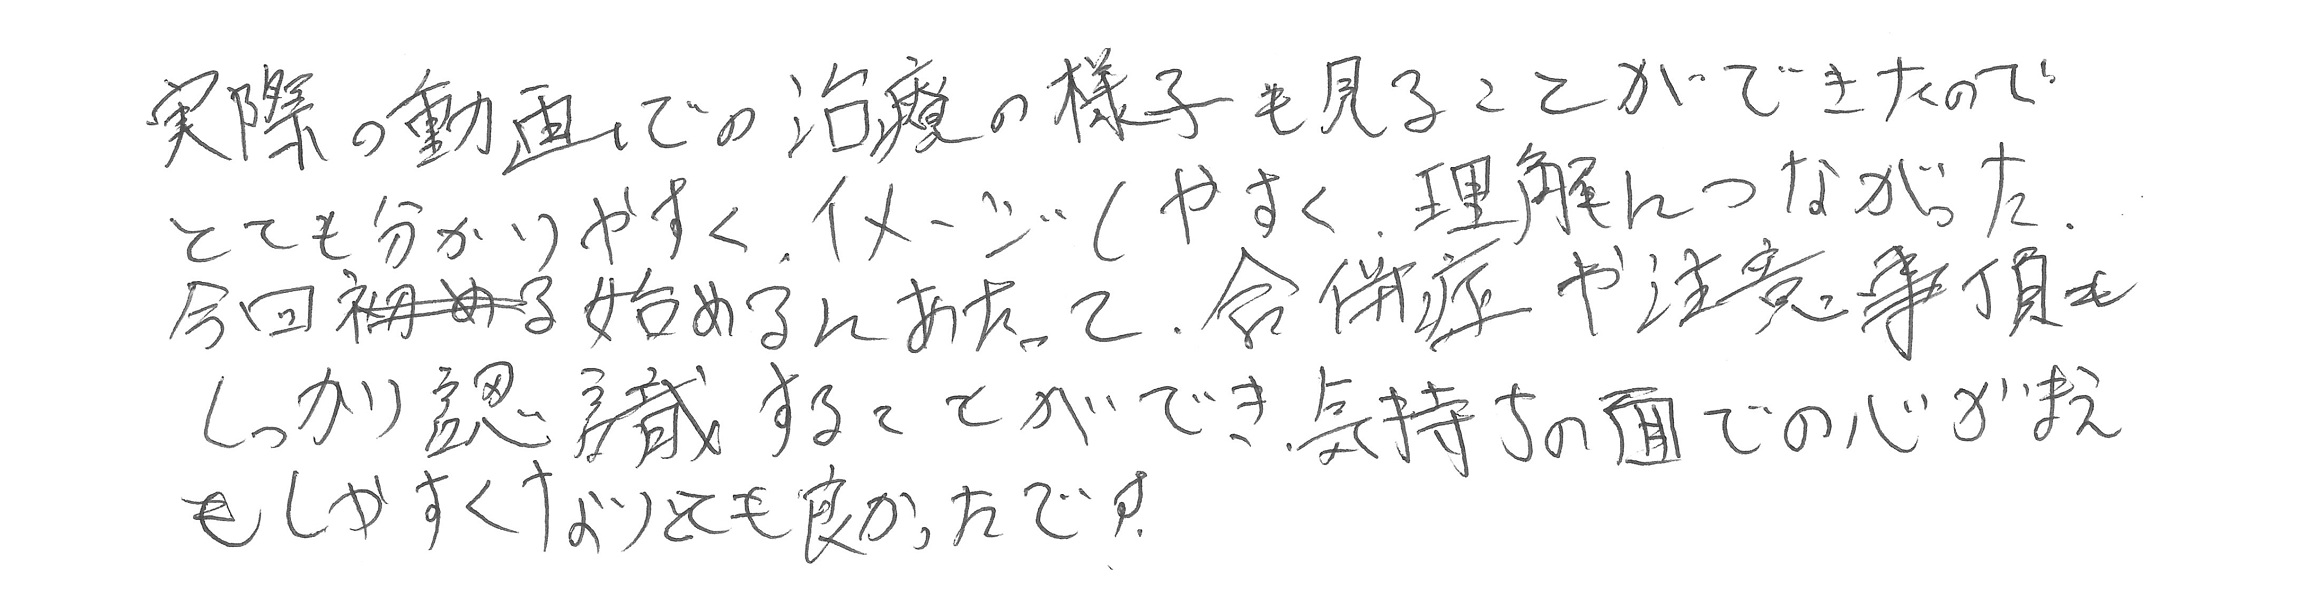 実際の動画での治療の様子も見ることができたので
とても分かりやすく、イメージしやすく、理解につながった。
今回初める始めるにあたって、合併症や注意事項も
しっかり認識することができ、気持ちの面での心がまえ
もしやすくなりとても良かったです。